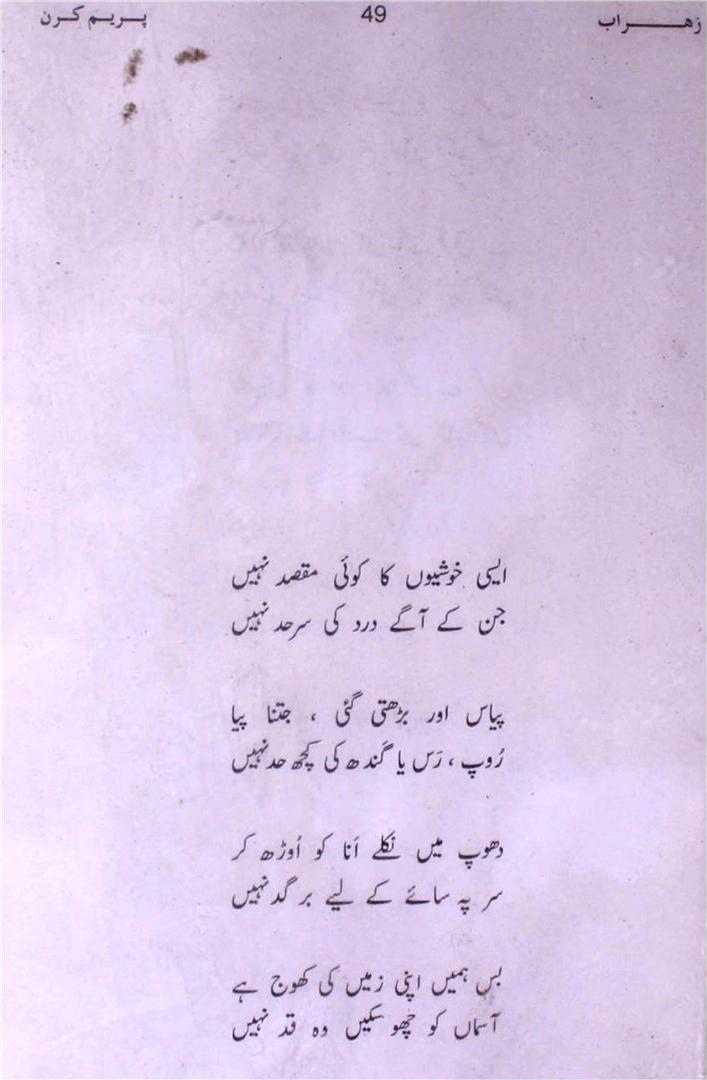 زہراب 49 پریم کرن
ایسی خوشیوں کا کوئی مقصد نہیں
جن کے آگے درد کی سرحد نہیں
پیاس اور بڑھتی گئی ، جتنا پیا
رُوپ ، رَس یا گندھ کی کچھ حد نہیں
دھوپ میں نکلے اَنا کو اُوڑھ کر
سر پہ سائے کے لیے برگد نہیں
بس ہمیں اپنی زمیں کی کھوج ہے
آسماں کو چھو سکیں وہ قد نہیں